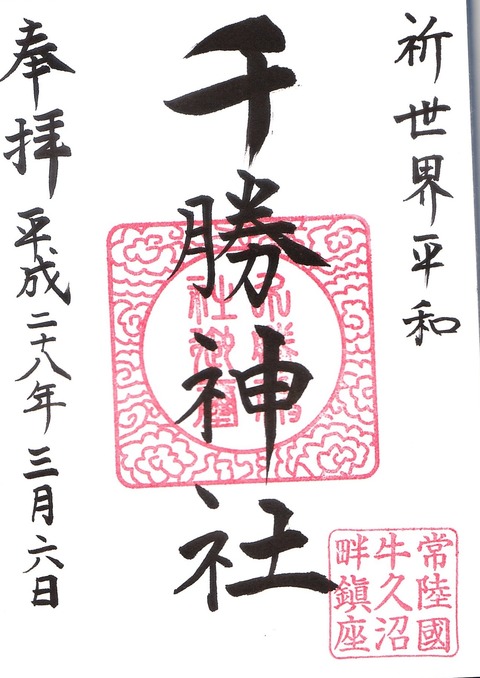 祈世界平和
千勝神社
奉拝 平成二十八年三月六日
常陸國
牛久沼
畔鎮座